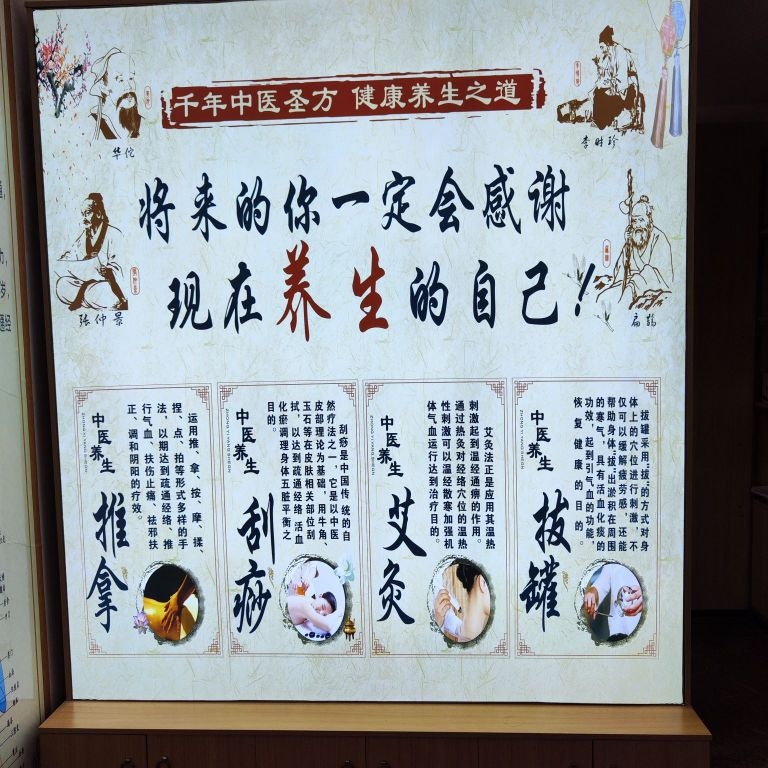 千年中医圣方 健康养生之道
华佗
李时珍
将来的你一定会感谢
现在养生的自己！
张仲景
扁鹊
中医养生
ZHONG YI YANG SHENG
推拿
运用推、拿、按、摩、揉、
捏、点、拍等形式多样的手
法，以期达到疏通经络、推
行气血、扶伤止痛、祛邪扶
正、调和阴阳的疗效。
中医养生
ZHONG YI YANG SHENG
刮痧
刮痧是中国传统的自
然疗法之一，它是以中医
皮部理论为基础，用牛角、
玉石等在皮肤相关部位刮
拭，以达到疏通经络 活血
化瘀调理身体五脏平衡之
目的。
中医养生
ZHONG YI YANG SHENG
艾灸
艾灸法正是应用其温热
刺激起到温经通痹的作用。
通过热灸对经络穴位的温热
性刺激可以温经散寒加强机
体气血运行达到治疗目的。
中医养生
ZHONG YI YANG SHENG
拔罐
拔罐采用"拔"的方式对身
体上的穴位进行刺激，不
仅可以缓解疲劳感，还能
帮助身体"拔"出淤积在周围
的寒气，具有活血化痰的
功效，起到引气血的功能，
恢复健康的目的。